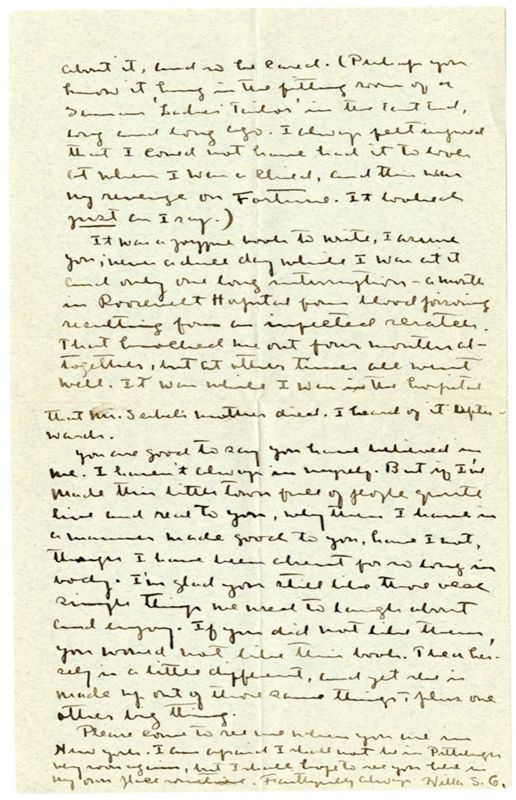 about it, and so he cared. (Perhaps you
know it hung in the fitting room of a
German 'Ladies' Tailor' in the East End,
long and long ago. I always felt injured
that I could not have had it to look
at when I was a child, and this was
my revenge on Fortune. It looked
just as I say.)
It was a joyous book to write, I assure
you; never a dull day while I was at it
and only one long interruption - a month
in Roosevelt Hospital from blood poisoning
resulting from an infected scratch.
That knocked me out four months al-
together, but at other times all went
well. It was while I was in the hospital
that Mr. Seibel's mother died. I heard of it after-
wards.
You are good to say you have believed in
me. I haven't always in myself. But if I've
made this little town full of people quite
live and real to you, why then I have in
a manner made good to you, have I not,
though I have been absent for so long in
body. I'm glad you still like those real
simple things we used to laugh about
and enjoy. If you did not like them,
you would not like this book. Thea her-
self is a little different, and yet she is
made up out of those same things, plus one
other big thing.
Please come to see me when you are in
New York. I am afraid I shall not be in Pittsburgh
very soon again, but I shall hope to see you here in
my own place sometime. Faithfully always Willa S. C.